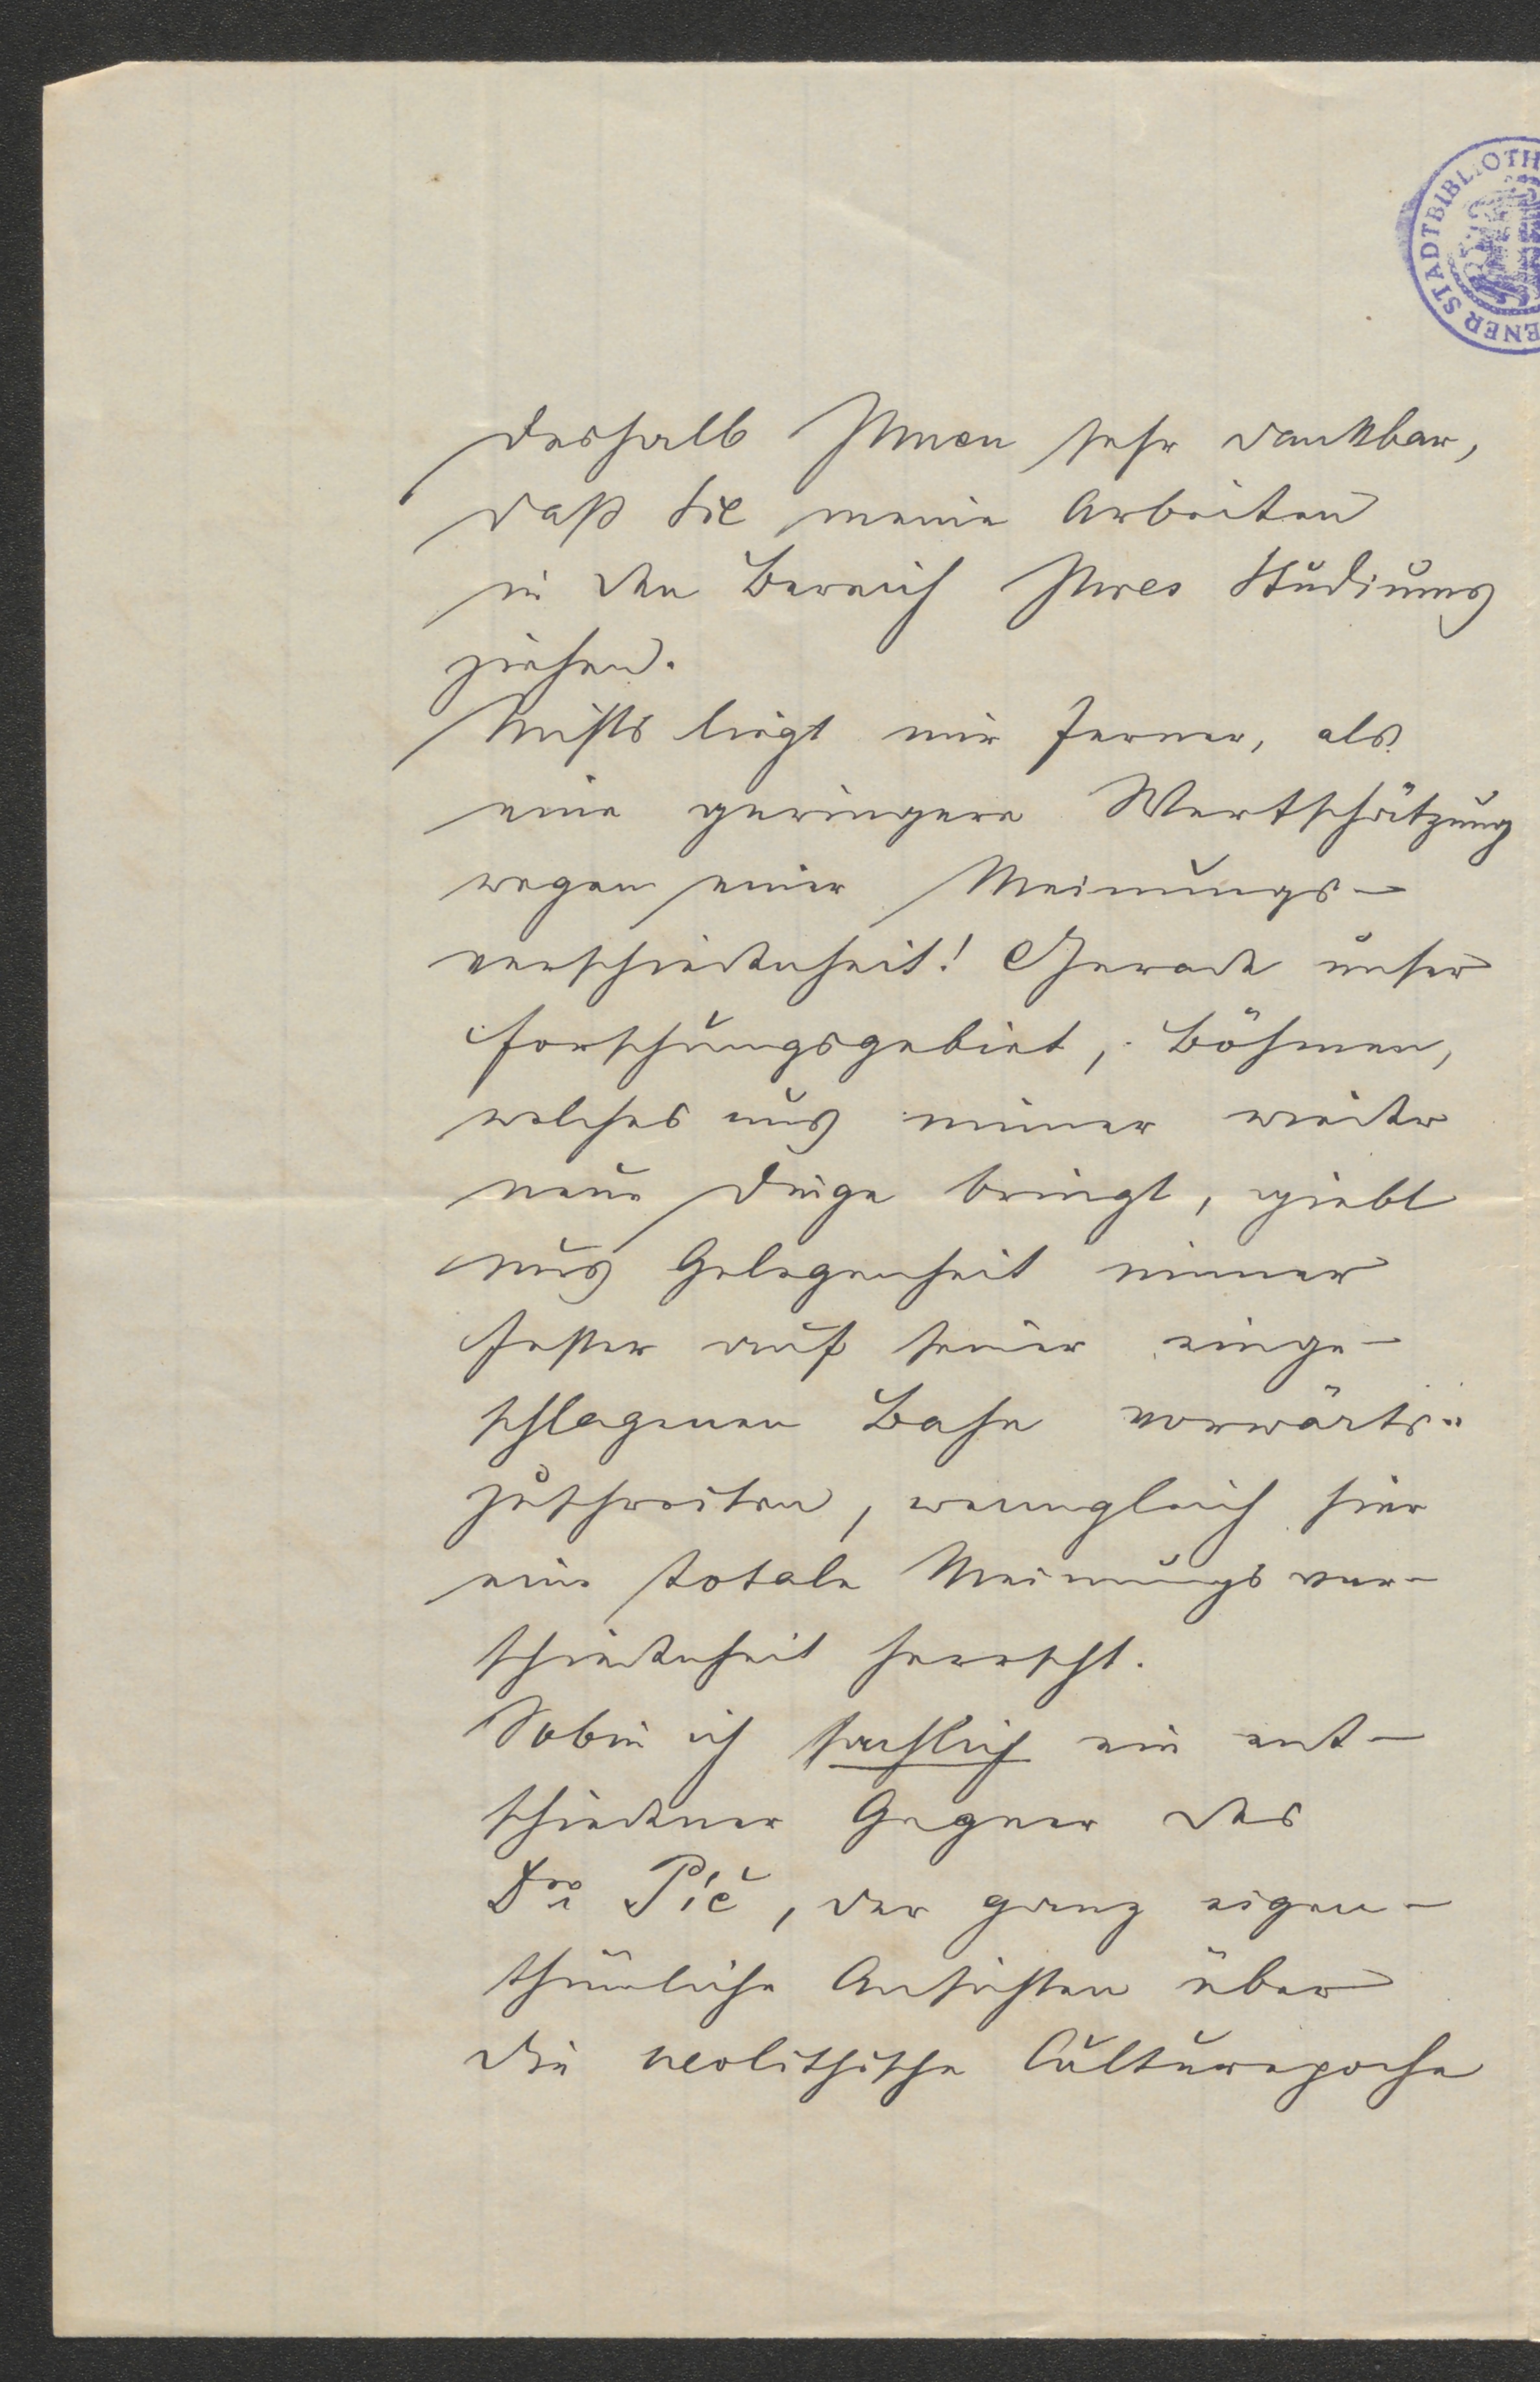 STADTBIBLIOTH
ENER
deshalb Ihnen sehr dankbar,
daß Sie meine Arbeiten
in den Bereich Ihres Studiums
ziehen.
Nichts liegt mir ferner, als
eine geringere Wertschätzung
wegen einer Meinungs-
verschiedenheit! Gerade unser
Forschungsgebiet, Böhmen,
welches uns immer wieder
neue Dinge bringt, giebt
uns Gelegenheit immer
fester auf seiner einge-
schlagenen Bahn vorwärts-
zuschreiten, wenngleich hier
eine totale Meinungsver-
schiedenheit herrscht.
So bin ich sachlich ein ent-
schiedener Gegner des
Dr Píč, der ganz eigen-
thümliche Ansichten über
die neolithische Culturepoche